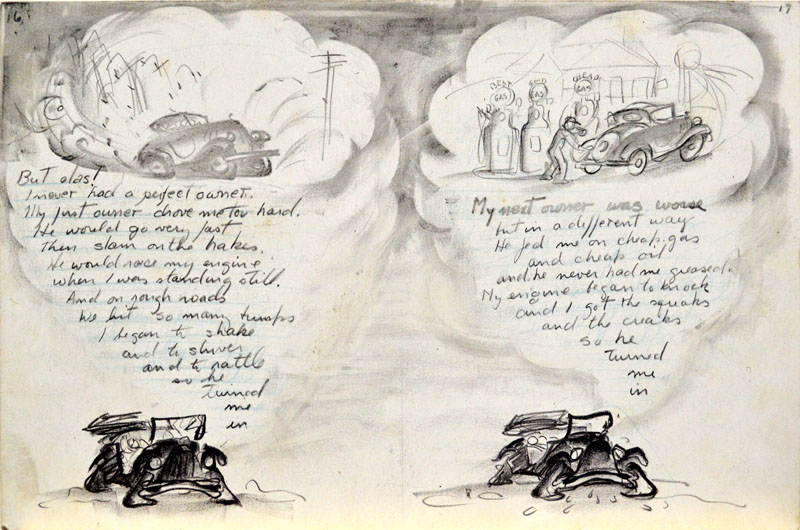 16
But alas!
I never had a perfect owner.
My first owner drove me too hard.
He would go very fast
Then slam on the brakes.
He would race my engine
when I was standing still.
And on rough roads
We hit so many bumps
I began to shake
and to shiver
and to rattle
so he
turned
me
in
17
BEST
GAS
GAS
CHEAP
GAS
My next owner was worse
but in a different way
He fed me on cheap gas
and cheap oil
and he never had me greased.
My engine began to knock
and I got the squeaks
and the creaks
so he
turned
me
in